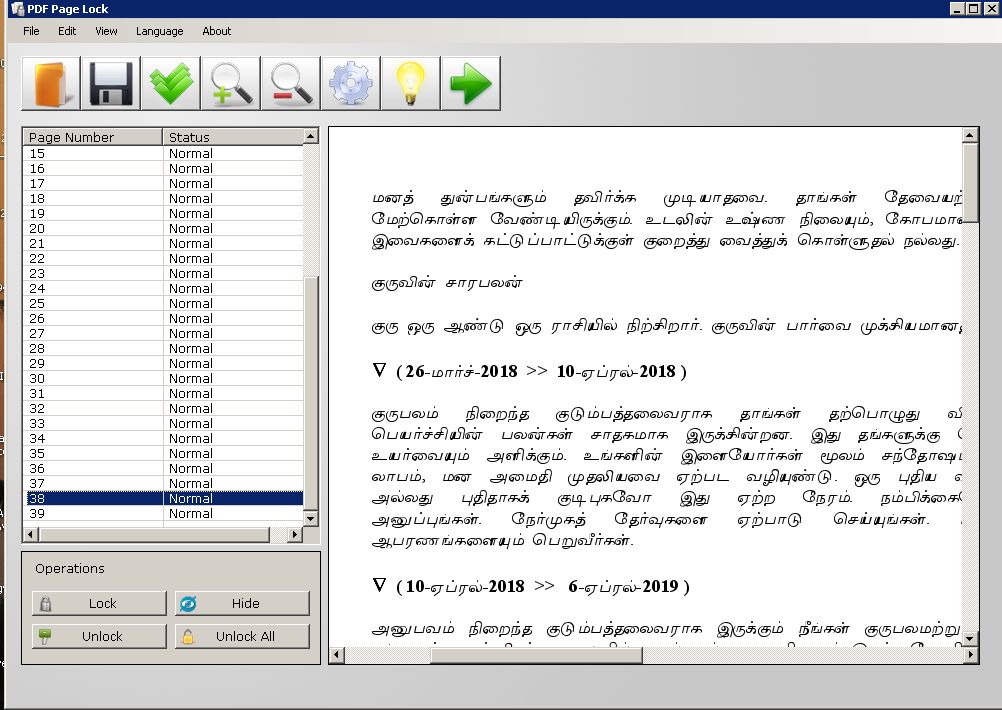 PDF Page Lock
File Edit View Language About
Page Number Status
15 Normal
16 Normal
17 Normal
18 Normal
19 Normal
20 Normal
21 Normal
22 Normal
23 Normal
24 Normal
25 Normal
26 Normal
27 Normal
28 Normal
29 Normal
30 Normal
31 Normal
32 Normal
33 Normal
34 Normal
35 Normal
36 Normal
37 Normal
38 Normal
39 Normal
Operations
Lock Hide
Unlock Unlock All
மனத் துன்பங்களும் தவிர்க்க முடியாதவை. தாங்கள்
மேற்கொள்ள வேண்டியிருக்கும். உடலின் உஷ்ண நிலையும்,
இவைகளைக் கட்டுப்பாட்டுக்குள் குறைத்து வைத்துக் கொள்ளுதல் நல்லது.
குருவின் சாரபலன்
குரு ஒரு ஆண்டு ஒரு ராசியில் நிற்கிறார். குருவின் பார்வை
∇ ( 26-மார்ச்-2018 >> 10-ஏப்ரல்-2018 )
குருபலம் நிறைந்த குடும்பத்தலைவராக தாங்கள் தற்பொழுது
பெயர்ச்சியின் பலன்கள் சாதகமாக இருக்கின்றன. இது தங்களுக்கு
உயர்வையும் அளிக்கும். உங்களின் இளையோர்கள் மூலம்
லாபம், மன அமைதி முதலியவை ஏற்பட வழியுண்டு. ஒரு புதிய
அல்லது புதிதாகக் குடிபுகவோ இது ஏற்ற நேரம்.
அனுப்புங்கள். நேர்முகத் தேர்வுகளை ஏற்பாடு செய்யுங்கள்.
ஆபரணங்களையும் பெறுவீர்கள்.
∇ ( 10-ஏப்ரல்-2018 >> 6-ஏப்ரல்-2019 )
அனுபவம் நிறைந்த குடும்பத்தலைவராக இருக்கும் நீங்கள்